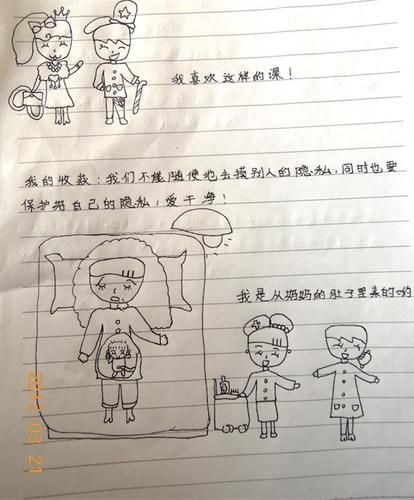 我喜欢这样的课！
我的收获：我们不能随便地去摸别人的隐私，同时也要
保护好自己的隐私，爱干净！
我是从妈妈的肚子里来的哟
2012 03 21